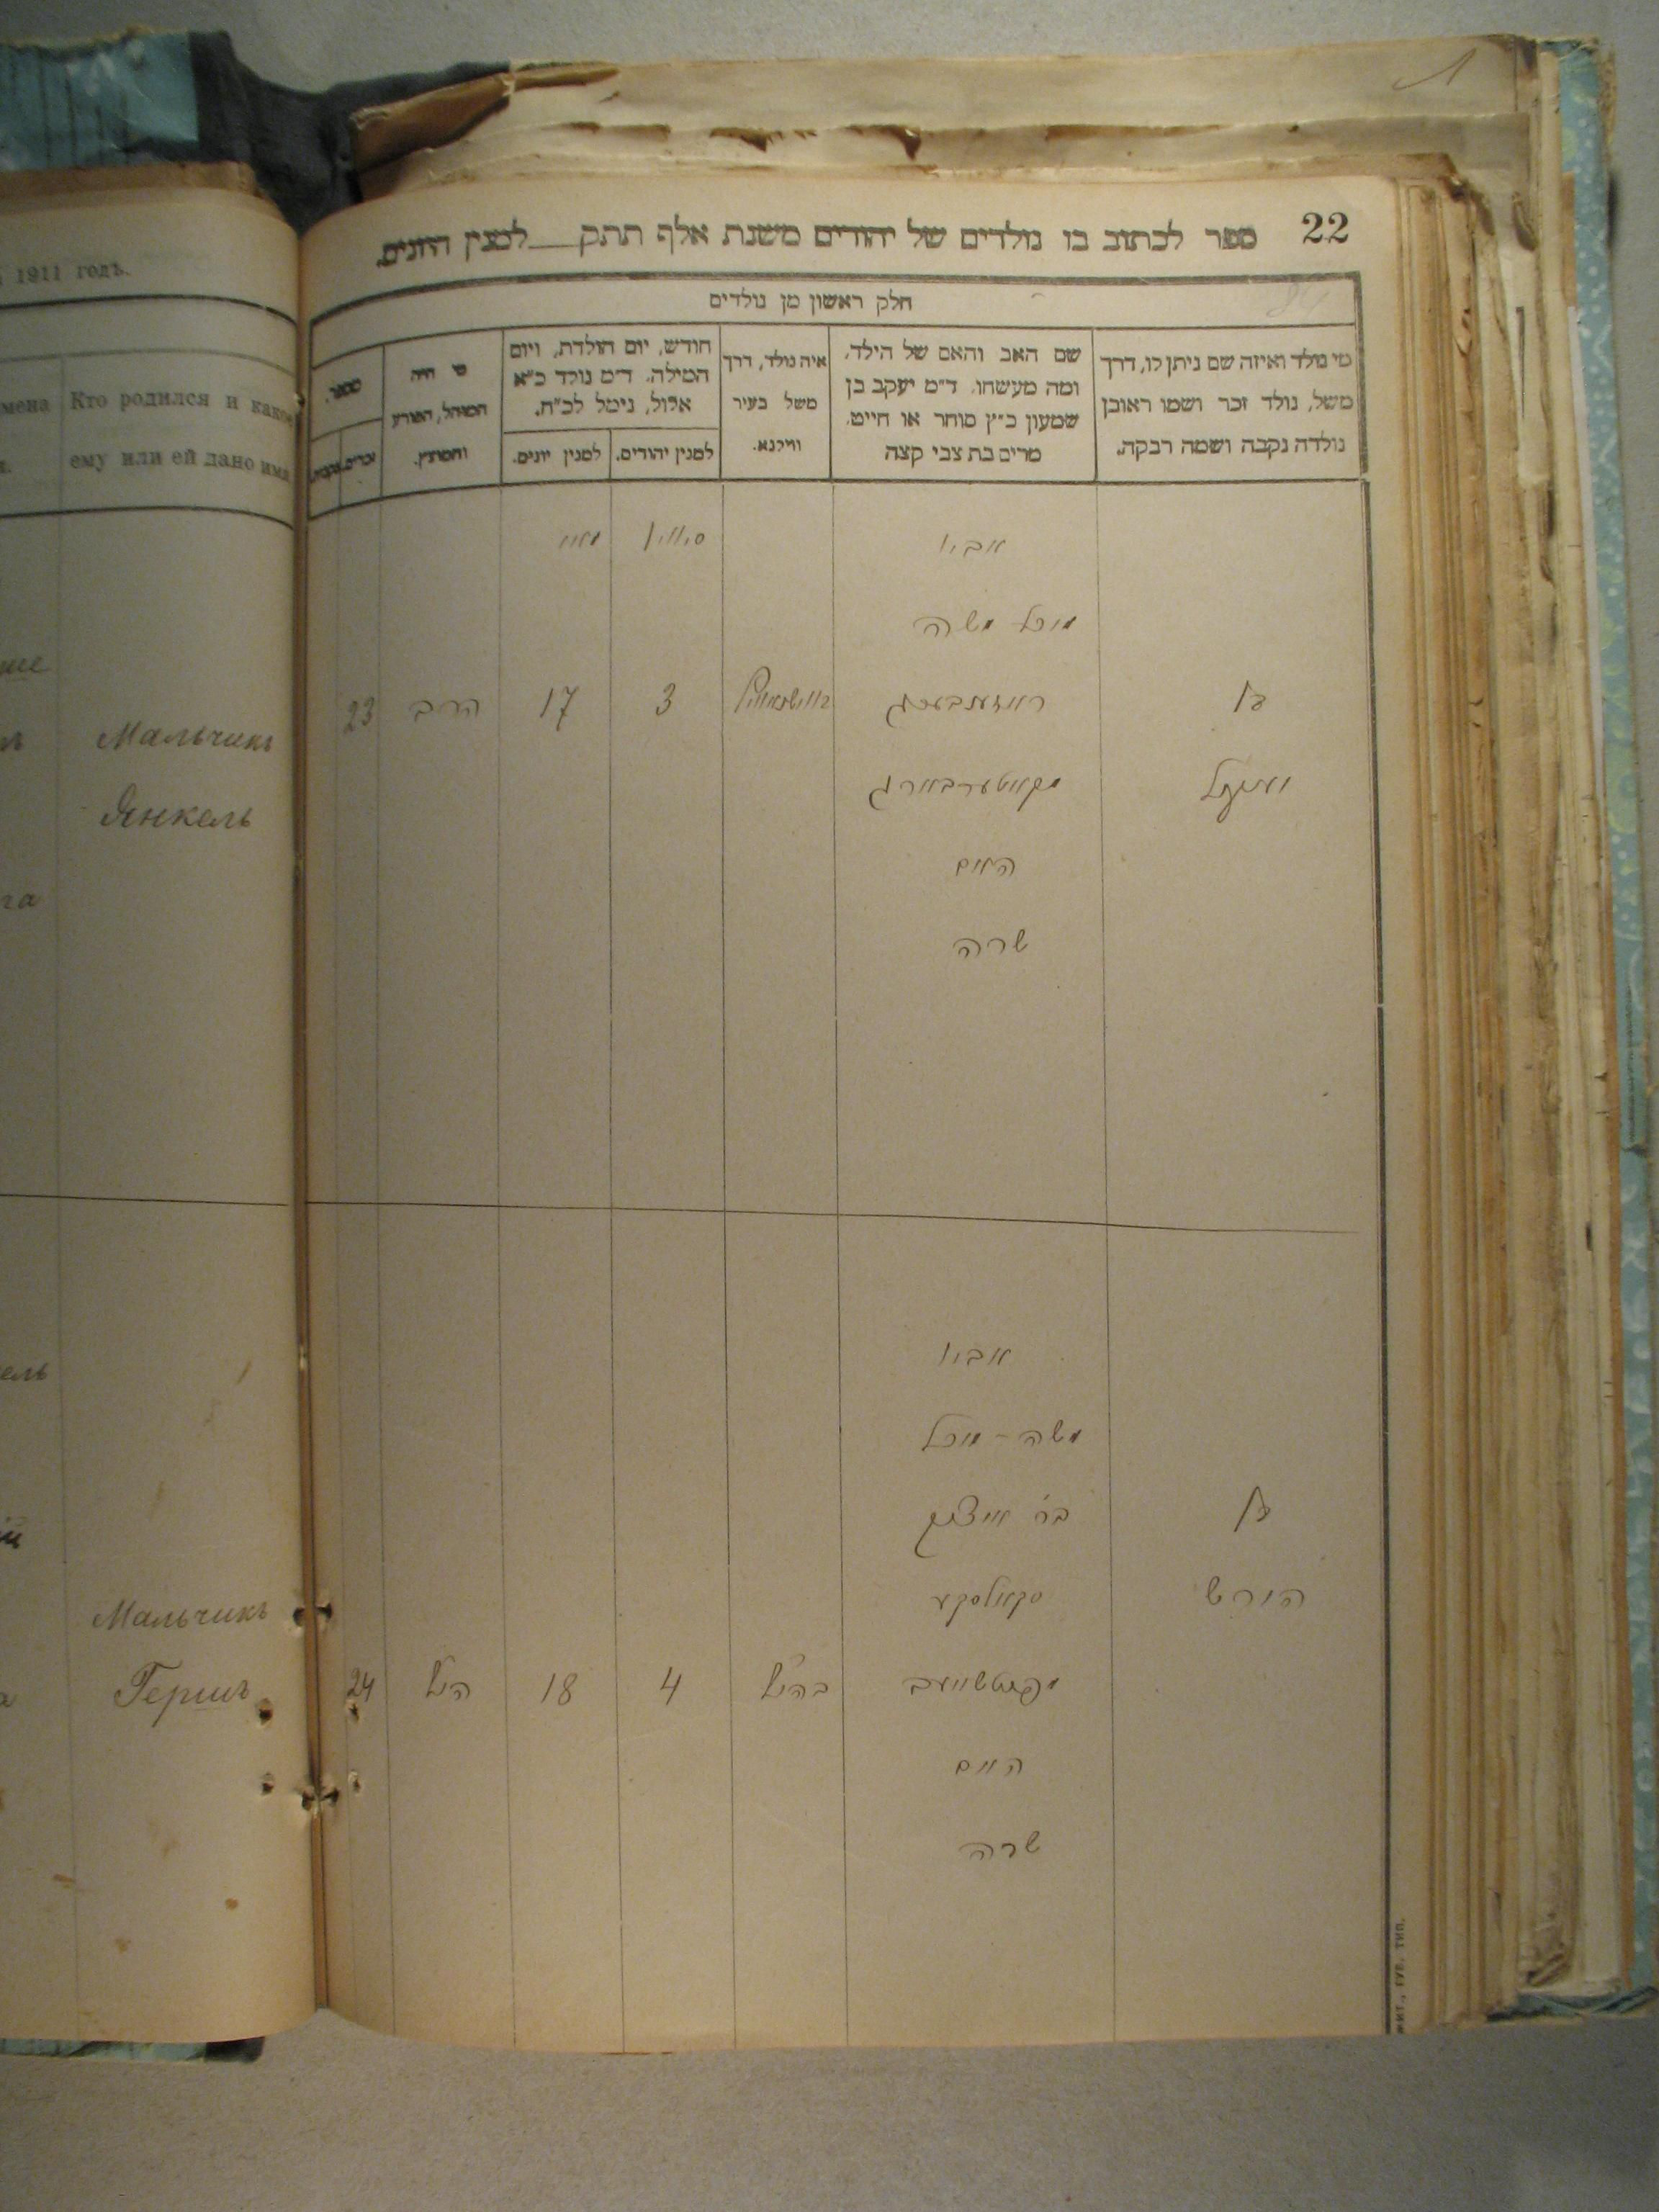 1911 годъ.
Кто родился и како
ему или ей дано имя
Мальчикъ
Янкель
Мальчикъ
Гершъ
22
ספר לכתוב בו נולדים של יהודים משנת אלף תתק__למנין היונים.
חלק ראשון מן נולדים
מי נולד ואיזה שם ניתן לו, דרך
משל, נולד זכר ושמו ראובן
נולדה נקבה ושמה רבקה.
שם האב והאם של הילד,
ומה מעשהו. ד״מ יעקב בן
שמעון כ״ץ סוחר או חייט,
מרים בת צבי קצה
איה נולד, דרך
משל בעיר
ווילנא.
חודש, יום הולדת, ויום
המילה. ד״מ נולד כ״א
אלול, נימל לכ״ח.
למנין יהודים.
למנין יונים.
מי היה
המוהל, הפורע
והמוצץ.
מספר.
זכרים.
נקבות.
אביו
סיון
מאי
מיכל משה
בן
ראזענבערג
3
17
הרב
23
יענקל
האם
שרה
אביו
משה - מיכל
בן
בר׳ איציק
הירש
4
18
הנ״ל
24
האם
שרה
ЖИТ., ГУБ. ТИП.